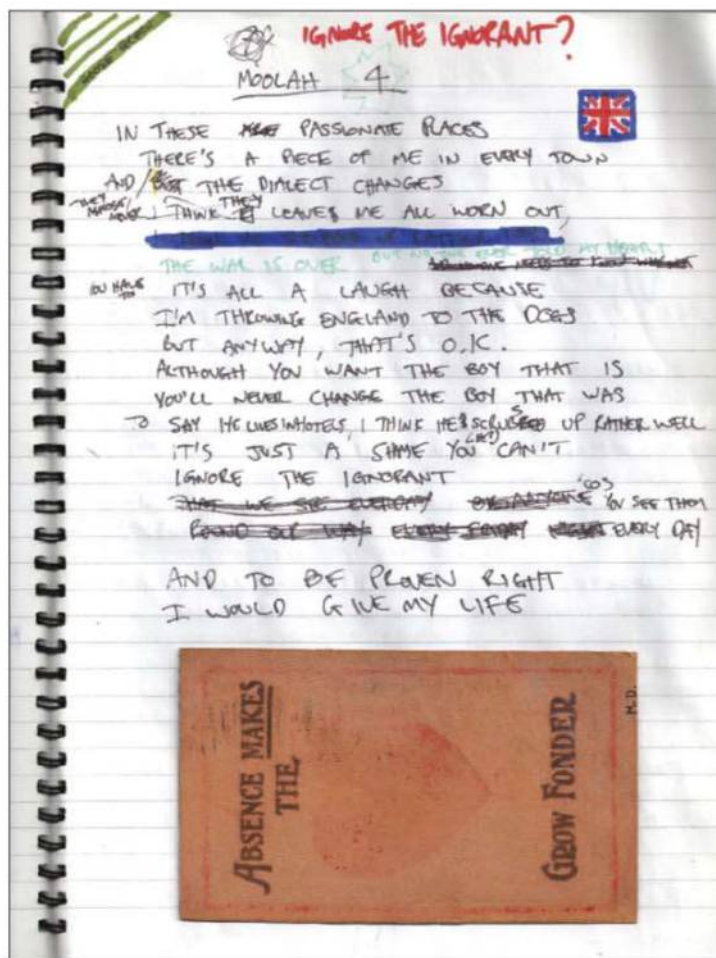 IGNORE THE IGNORANT?
MOOLAH 4
IN THESE PASSIONATE PLACES
THERE'S A PIECE OF ME IN EVERY TOWN
AND / BUT THE DIALECT CHANGES
I THINK THEY LEAVES ME ALL WORN OUT,
THE WAR IS OVER BUT NO ONE EVER TOLD MY HEART
YOU HAVE TO
IT'S ALL A LAUGH BECAUSE
I'M THROWING ENGLAND TO THE DOGS
BUT ANYWAY, THAT'S O.K.
ALTHOUGH YOU WANT THE BOY THAT IS
YOU'LL NEVER CHANGE THE BOY THAT WAS
SAY HE LIVES IN HOTELS, I THINK HE SCRUBS UP RATHER WELL
IT'S JUST A SHAME YOU CAN'T
IGNORE THE IGNORANT
THAT WE SEE EVERYDAY OR ANYONE 'COS YOU SEE THEM
ROUND OUR WAY EVERY FRIDAY NIGHT EVERY DAY
AND TO BE PROVEN RIGHT
I WOULD GIVE MY LIFE
ABSENCE MAKES
THE
GROW FONDER
M.D.